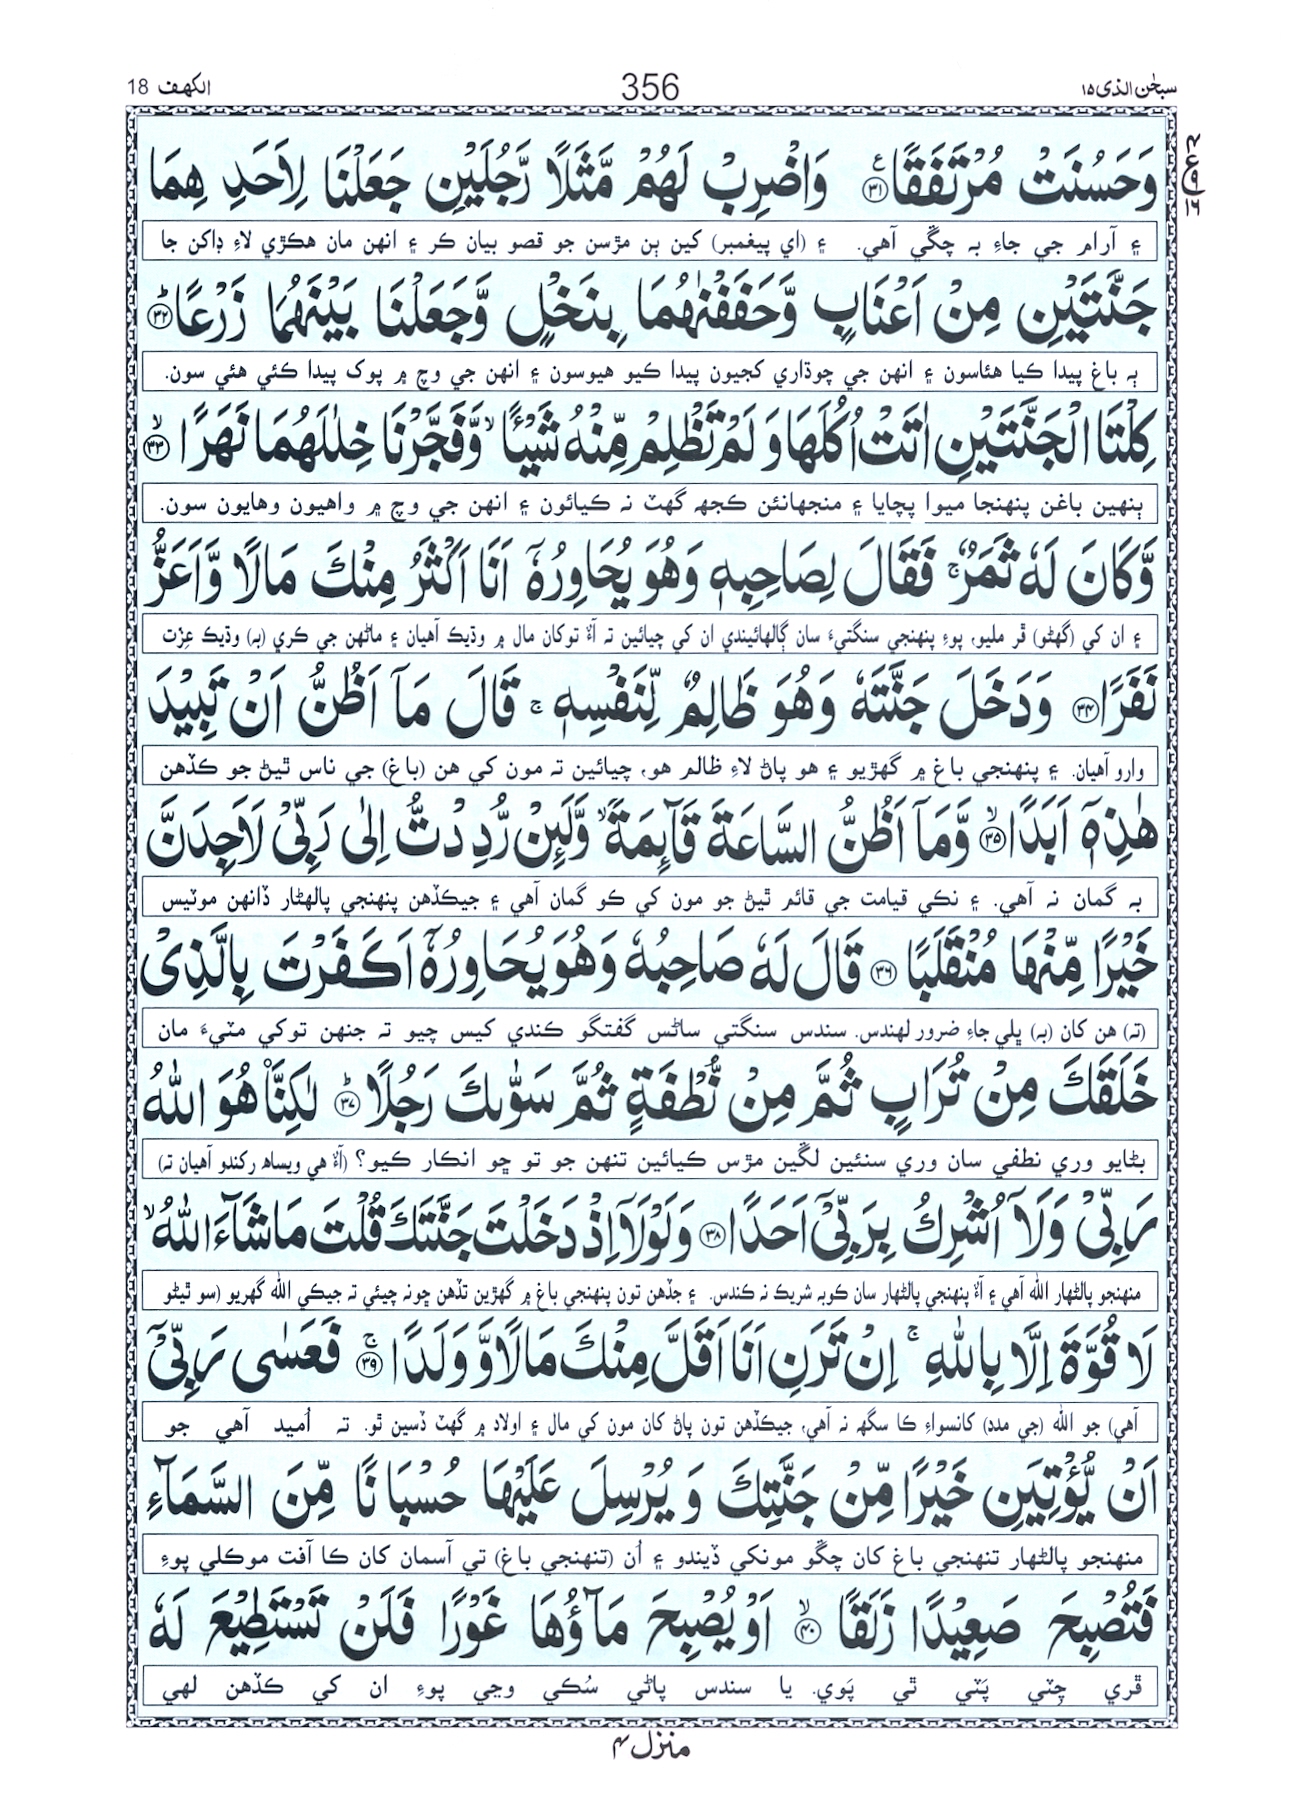 سبحٰن الذی ۱۵ 356 الکهف 18
وَحَسُنَتْ مُرْتَفَقًا ﴿۳۱﴾ۧ وَاضْرِبْ لَهُمْ مَّثَلًا رَّجُلَيْنِ جَعَلْنَا لِاَحَدِ هِمَا
۽ آرام جي جاءِ بہ چڱي آهي. ۽ (اي پيغمبر) کين ٻن مڙسن جو قصو بيان ڪر ۽ انهن مان هڪڙي لاءِ ڊاکن جا
جَنَّتَيْنِ مِنْ اَعْنَابٍ وَّحَفَفْنٰهُمَا بِنَخْلٍ وَّجَعَلْنَا بَيْنَهُمَا زَرْعًا ﴿۳۲﴾ؕ
ٻہ باغ پيدا ڪيا هئاسون ۽ انهن جي چوڌاري کجيون پيدا ڪيو هيوسون ۽ انهن جي وچ ۾ پوک پيدا ڪئي هئي سون.
كِلْتَا الْجَنَّتَيْنِ اٰتَتْ اُكُلَهَا وَ لَمْ تَظْلِمْ مِّنْهُ شَيْـًٔا ۙ وَّفَجَّرْنَا خِلٰلَهُمَا نَهَرًا ﴿۳۳﴾ۙ
ٻنهين باغن پنهنجا ميوا پچايا ۽ منجهانئن ڪجهہ گهٽ نہ ڪيائون ۽ انهن جي وچ ۾ واهيون وهايون سون.
وَّكَانَ لَهٗ ثَمَرٌ ۚ فَقَالَ لِصَاحِبِهٖ وَهُوَ يُحَاوِرُهٗۤ اَنَا اَكْثَرُ مِنْكَ مَالًا وَّاَعَزُّ
۽ ان کي (گهڻو) ڦر مليو، پوءِ پنهنجي سنگتيءَ سان ڳالهائيندي ان کي چيائين تہ آءٌ توکان مال ۾ وڌيڪ آهيان ۽ ماڻهن جي ڪري (بہ) وڌيڪ عِزّت
نَفَرًا ﴿۳۴﴾ وَدَخَلَ جَنَّتَهٗ وَهُوَ ظَالِمٌ لِّنَفْسِهٖ ۚ قَالَ مَاۤ اَظُنُّ اَنْ تَبِيْدَ
وارو آهيان. ۽ پنهنجي باغ ۾ گهڙيو ۽ هو پاڻ لاءِ ظالم هو، چيائين تہ مون کي هن (باغ) جي ناس ٿيڻ جو ڪڏهن
هٰذِهٖۤ اَبَدًا ﴿۳۵﴾ۙ وَّمَاۤ اَظُنُّ السَّاعَةَ قَآئِمَةً ۙ وَّلَئِنْ رُّدِدْتُّ اِلٰى رَبِّيْ لَاَجِدَنَّ
بہ گمان نہ آهي. ۽ نڪي قيامت جي قائم ٿيڻ جو مون کي ڪو گمان آهي ۽ جيڪڏهن پنهنجي پالهڻار ڏانهن موٽيس
خَيْرًا مِّنْهَا مُنْقَلَبًا ﴿۳۶﴾ قَالَ لَهٗ صَاحِبُهٗ وَهُوَ يُحَاوِرُهٗۤ اَكَفَرْتَ بِالَّذِيْ
(تہ) هن کان (بہ) ڀلي جاءِ ضرور لهندس. سندس سنگتي ساڻس گفتگو ڪندي کيس چيو تہ جنهن توکي مٽيءَ مان
خَلَقَكَ مِنْ تُرَابٍ ثُمَّ مِنْ نُّطْفَةٍ ثُمَّ سَوّٰىكَ رَجُلًا ﴿۳۷﴾ؕ لٰكِنَّا۠ هُوَ اللّٰهُ
بڻايو وري نطفي سان وري سنئين لڱين مڙس ڪيائين تنهن جو تو ڇو انڪار ڪيو؟ (آءٌ هي ويساه رکندو آهيان تہ)
رَبِّيْ وَلَاۤ اُشْرِكُ بِرَبِّيْۤ اَحَدًا ﴿۳۸﴾ وَلَوْلَاۤ اِذْ دَخَلْتَ جَنَّتَكَ قُلْتَ مَا شَآءَ اللّٰهُ ۙ
منهنجو پالڻهار الله آهي ۽ آءٌ پنهنجي پالڻهار سان ڪوبہ شريڪ نہ ڪندس. ۽ جڏهن تون پنهنجي باغ ۾ گهڙين تڏهن ڇونہ چيئي تہ جيڪي الله گهريو (سو ٿيڻو
لَا قُوَّةَ اِلَّا بِاللّٰهِ ۚ اِنْ تَرَنِ اَنَا اَقَلَّ مِنْكَ مَالًا وَّوَلَدًا ﴿۳۹﴾ۚ فَعَسٰى رَبِّيْۤ
آهي) جو الله (جي مدد) کانسواءِ ڪا سگهہ نہ آهي، جيڪڏهن تون پاڻ کان مون کي مال ۽ اولاد ۾ گهٽ ڏسين ٿو. تہ اُميد آهي جو
اَنْ يُّؤْتِيَنِ خَيْرًا مِّنْ جَنَّتِكَ وَ يُرْسِلَ عَلَيْهَا حُسْبَانًا مِّنَ السَّمَآءِ
منهنجو پالڻهار تنهنجي باغ کان چڱو مونکي ڏيندو ۽ اُن (تنهنجي باغ) تي آسمان کان ڪا آفت موڪلي پوءِ
فَتُصْبِحَ صَعِيْدًا زَلَقًا ﴿۴۰﴾ۙ اَوْ يُصْبِحَ مَآؤُهَا غَوْرًا فَلَنْ تَسْتَطِيْعَ لَهٗ
ڦري چِٽي پَٽي ٿي پَوي. يا سندس پاڻي سُڪي وڃي پوءِ ان کي ڪڏهن لهي
منزل ۴